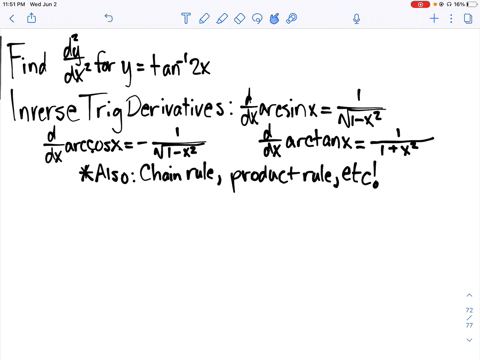 11:51 PM Wed Jun 2
16%
Find d²y/dx² for y = tan⁻¹ 2x
Inverse Trig Derivatives: d/dx arcsinx = 1/√1-x²
d/dx arccosx = - 1/√1-x² d/dx arctanx = 1/1+x²
*Also: Chain rule, product rule, etc!
72
/
77